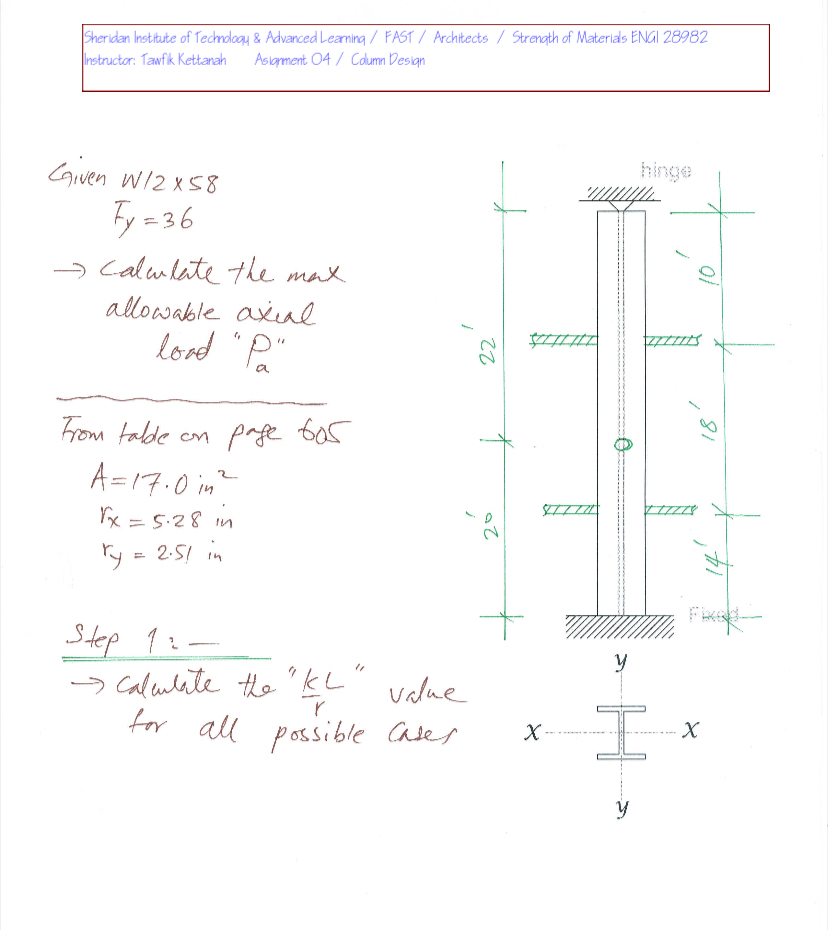 Sheridan Institute of Technology & Advanced Learning / FAST / Architects / Strength of Materials ENGI 28982
Instructor: Tawfik Kettanah Asignment 04 / Column Design
Given W12 x 58
Fy = 36
→ Calculate the max
allowable axial
load "Pa"
From table on page 605
A = 17.0 in²
rx = 5.28 in
ry = 2.51 in
Step 1 : —
→ Calculate the "KL/r" value
for all possible Cases
hinge
10'
22'
18'
20'
14'
Fixed
y
X X
y